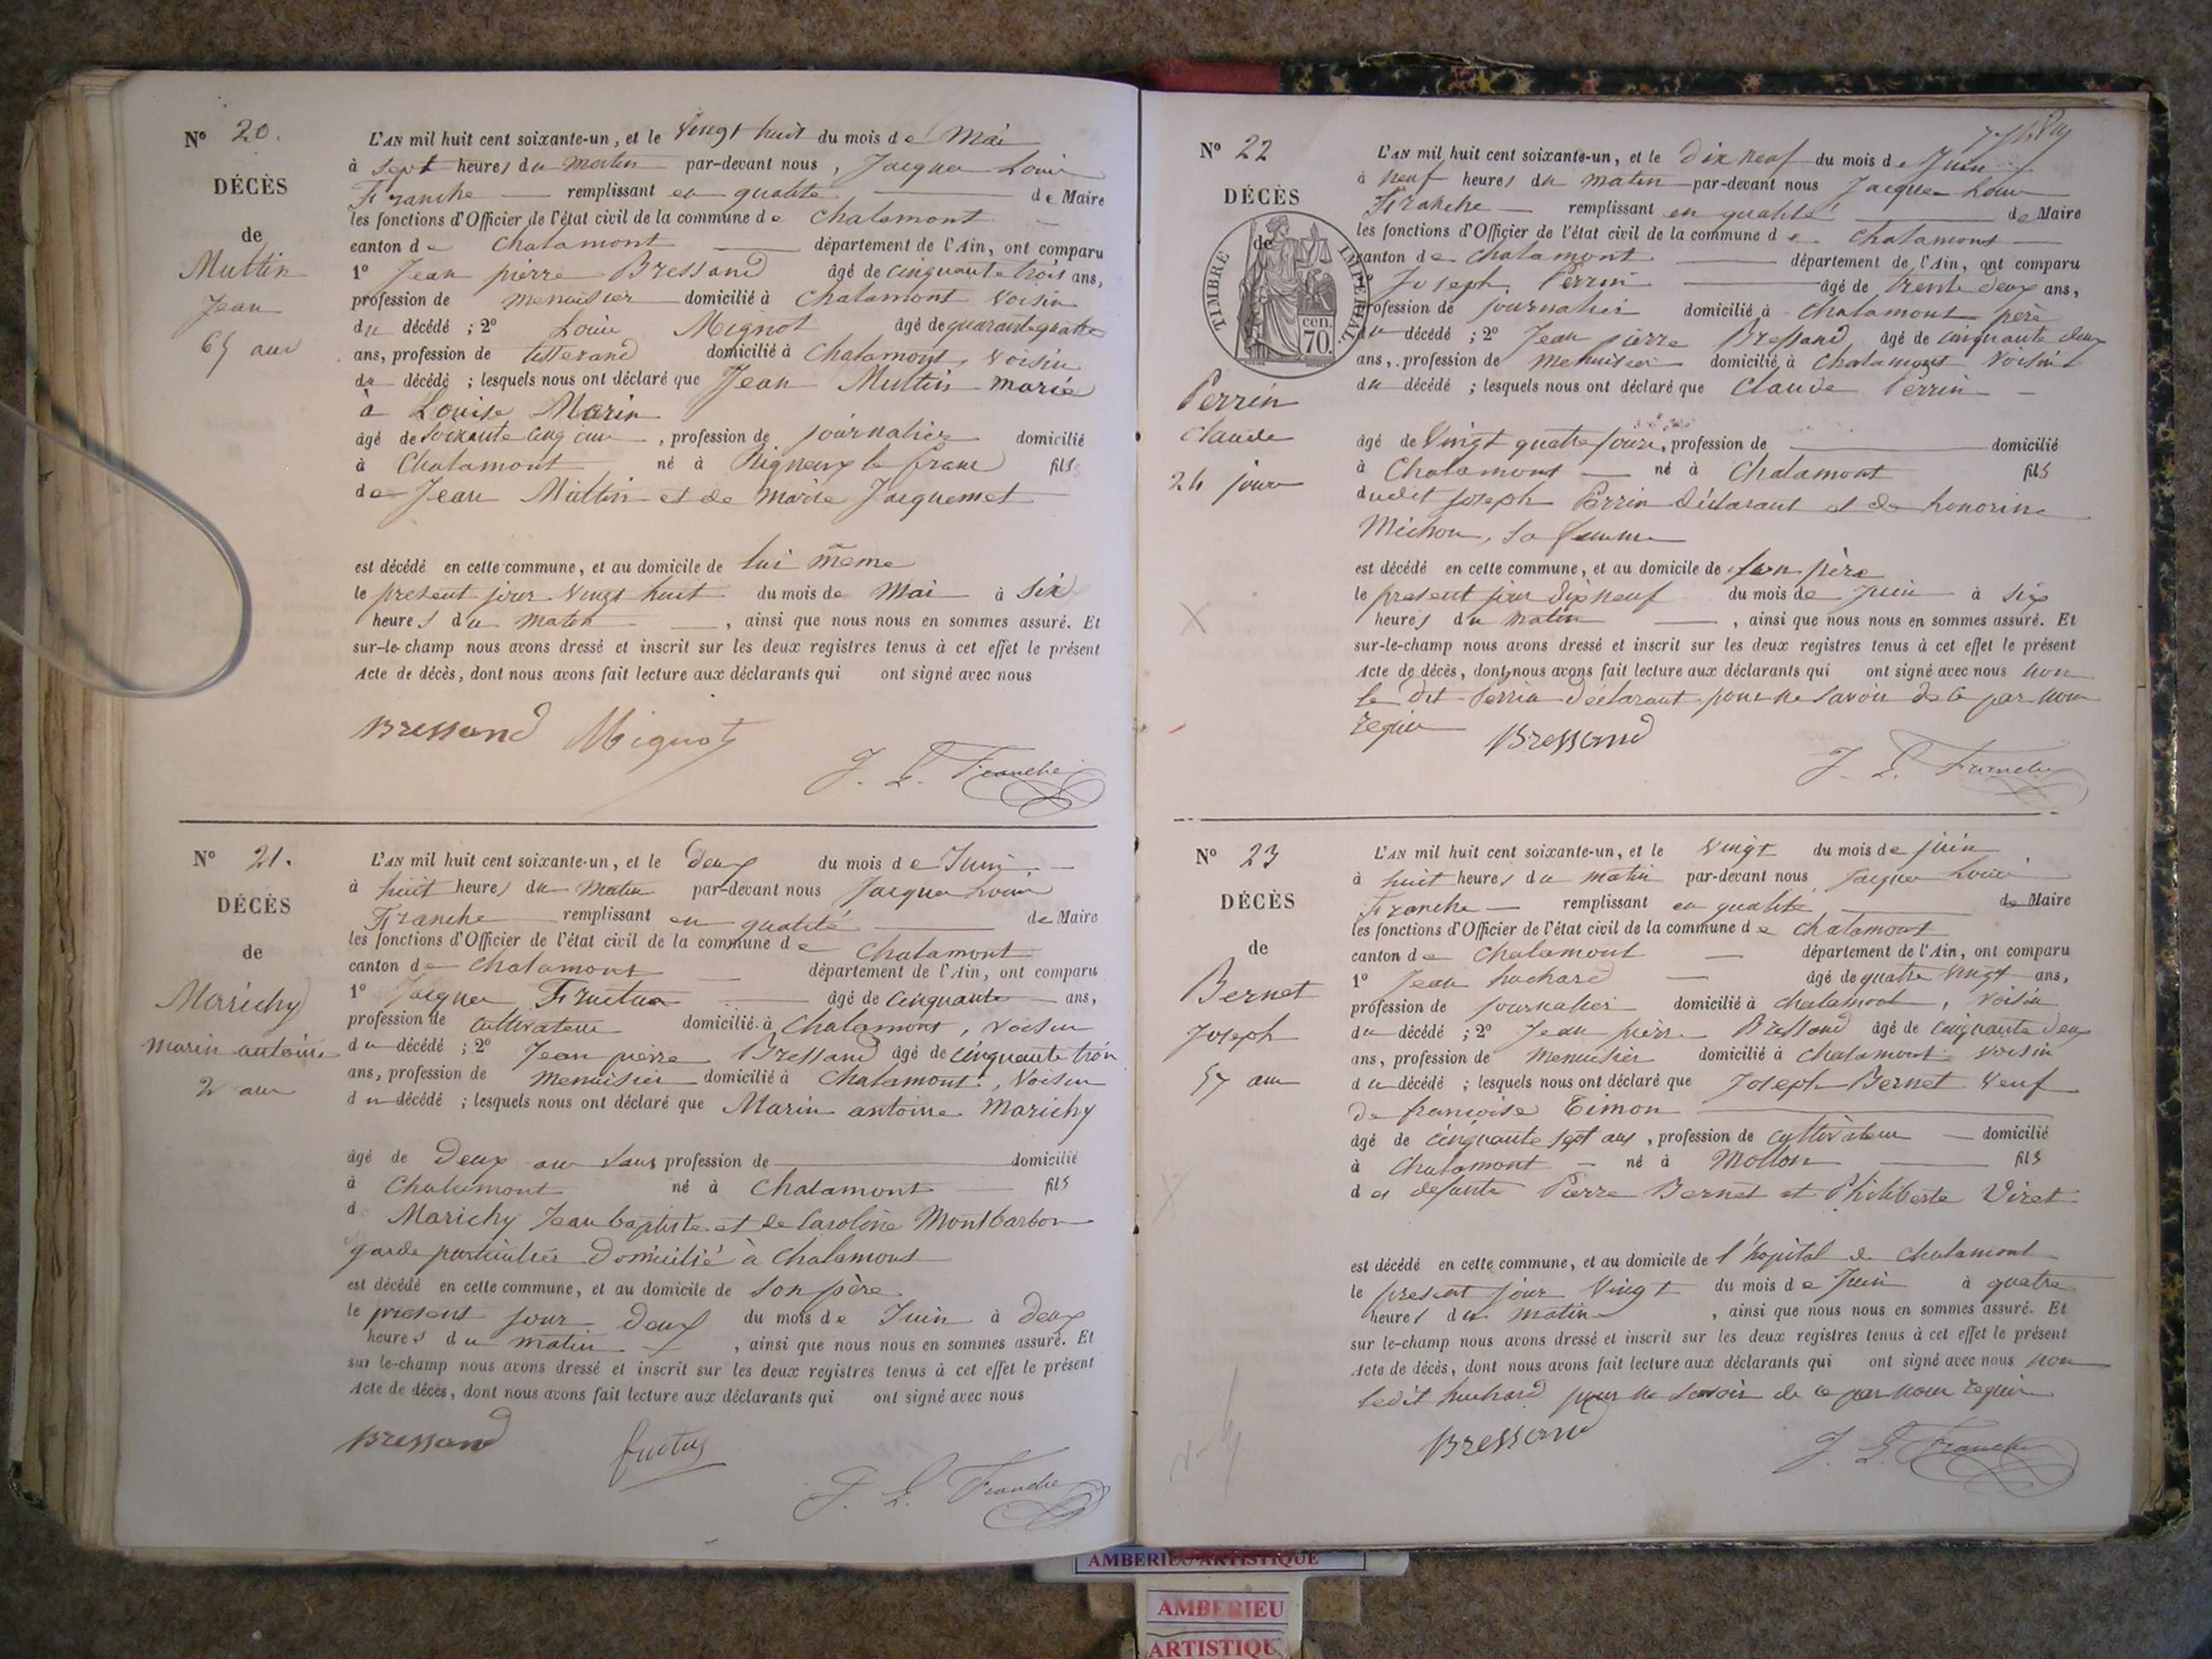 N° 20.
DÉCÈS
de
Multin
Jean
65 ans
L'AN mil huit cent soixante-un, et le vingt huit du mois de Mai
à sept heures du matin par-devant nous, Jacques Louis
Franche remplissant en qualité de Maire
les fonctions d'Officier de l'état civil de la commune de Chalamont
canton de Chalamont département de l'Ain, ont comparu
1° Jean pierre Bressand âgé de cinquante trois ans,
profession de menuisier domicilié à Chalamont voisin
du décédé ; 2° Louis Mignot âgé de quarante quatre
ans, profession de domicilié à Chalamont, voisin
du décédé ; lesquels nous ont déclaré que Jean Multin marié
à Louise Marin
âgé de soixante cinq ans, profession de journalier domicilié
à Chalamont né à Rigneux le franc fils
de Jean Multin et de Marie Jacquemet
est décédé en cette commune, et au domicile de lui même
le présent jour vingt huit du mois de Mai à six
heures du matin, ainsi que nous nous en sommes assuré. Et
sur-le-champ nous avons dressé et inscrit sur les deux registres tenus à cet effet le présent
Acte de décès, dont nous avons fait lecture aux déclarants qui ont signé avec nous
Bressand Mignot
J. L. Franche
N° 21.
DÉCÈS
de
Marichy
marin antoine
2 ans
L'AN mil huit cent soixante-un, et le deux du mois de Juin
à huit heures du matin par-devant nous Jacques Louis
Franche remplissant en qualité de Maire
les fonctions d'Officier de l'état civil de la commune de Chalamont
canton de Chalamont département de l'Ain, ont comparu
1° Jacques Fructus âgé de cinquante ans,
profession de cultivateur domicilié à Chalamont, voisin
du décédé ; 2° Jean pierre Bressand âgé de cinquante trois
ans, profession de menuisier domicilié à Chalamont, voisin
du décédé ; lesquels nous ont déclaré que Marin antoine Marichy
âgé de deux ans sans profession de domicilié
à Chalamont né à Chalamont fils
de Marichy Jean baptiste et de Caroline Montbarbon
garde particulier domicilié à Chalamont
est décédé en cette commune, et au domicile de son père
le présent jour deux du mois de Juin à deux
heures du matin, ainsi que nous nous en sommes assuré. Et
sur le-champ nous avons dressé et inscrit sur les deux registres tenus à cet effet le présent
Acte de décès, dont nous avons fait lecture aux déclarants qui ont signé avec nous
Bressand fructus
J. L. Franche
N° 22
DÉCÈS
de
TIMBRE IMPÉRIAL
70 cen.
Perrin
Claude
24 jours
L'AN mil huit cent soixante-un, et le dix neuf du mois de Juin
à neuf heures du matin par-devant nous Jacques Louis
Franche remplissant en qualité de Maire
les fonctions d'Officier de l'état civil de la commune de Chalamont
canton de Chalamont département de l'Ain, ont comparu
1° Joseph Perrin âgé de trente deux ans,
profession de journalier domicilié à Chalamont père
du décédé ; 2° Jean pierre Bressand âgé de cinquante deux
ans, profession de menuisier domicilié à Chalamont voisin
du décédé ; lesquels nous ont déclaré que Claude Perrin
âgé de vingt quatre jours, profession de domicilié
à Chalamont né à Chalamont fils
dudit Joseph Perrin déclarant et de honorine
Michon, sa femme
est décédé en cette commune, et au domicile de son père
le présent jour dix neuf du mois de Juin à six
heures du matin, ainsi que nous nous en sommes assuré. Et
sur-le-champ nous avons dressé et inscrit sur les deux registres tenus à cet effet le présent
Acte de décès, dont nous avons fait lecture aux déclarants qui ont signé avec nous non
le dit Perrin déclarant pour ne savoir de ce par nous
requis Bressand
J. L. Franche
N° 23
DÉCÈS
de
Bernet
Joseph
57 ans
L'AN mil huit cent soixante-un, et le vingt du mois de juin
à huit heures du matin par-devant nous Jacques Louis
Franche remplissant en qualité de Maire
les fonctions d'Officier de l'état civil de la commune de Chalamont
canton de Chalamont département de l'Ain, ont comparu
1° Jean huchard âgé de quatre vingt ans,
profession de journalier domicilié à Chalamont, voisin
du décédé ; 2° Jean pierre Bressand âgé de cinquante deux
ans, profession de menuisier domicilié à Chalamont voisin
du décédé ; lesquels nous ont déclaré que Joseph Bernet veuf
de françoise Timon
âgé de cinquante sept ans, profession de cultivateur domicilié
à Chalamont né à Mollon fils
des defunts Pierre Bernet et Philiberte Viret
est décédé en cette commune, et au domicile de l'hopital de Chalamont
le présent jour vingt du mois de Juin à quatre
heures du matin, ainsi que nous nous en sommes assuré. Et
sur le-champ nous avons dressé et inscrit sur les deux registres tenus à cet effet le présent
Acte de décès, dont nous avons fait lecture aux déclarants qui ont signé avec nous non
ledit huchard pour ne savoir de ce par nous requis
Bressand
J. L. Franche
AMBERIEU ARTISTIQUE
AMBERIEU
ARTISTIQU